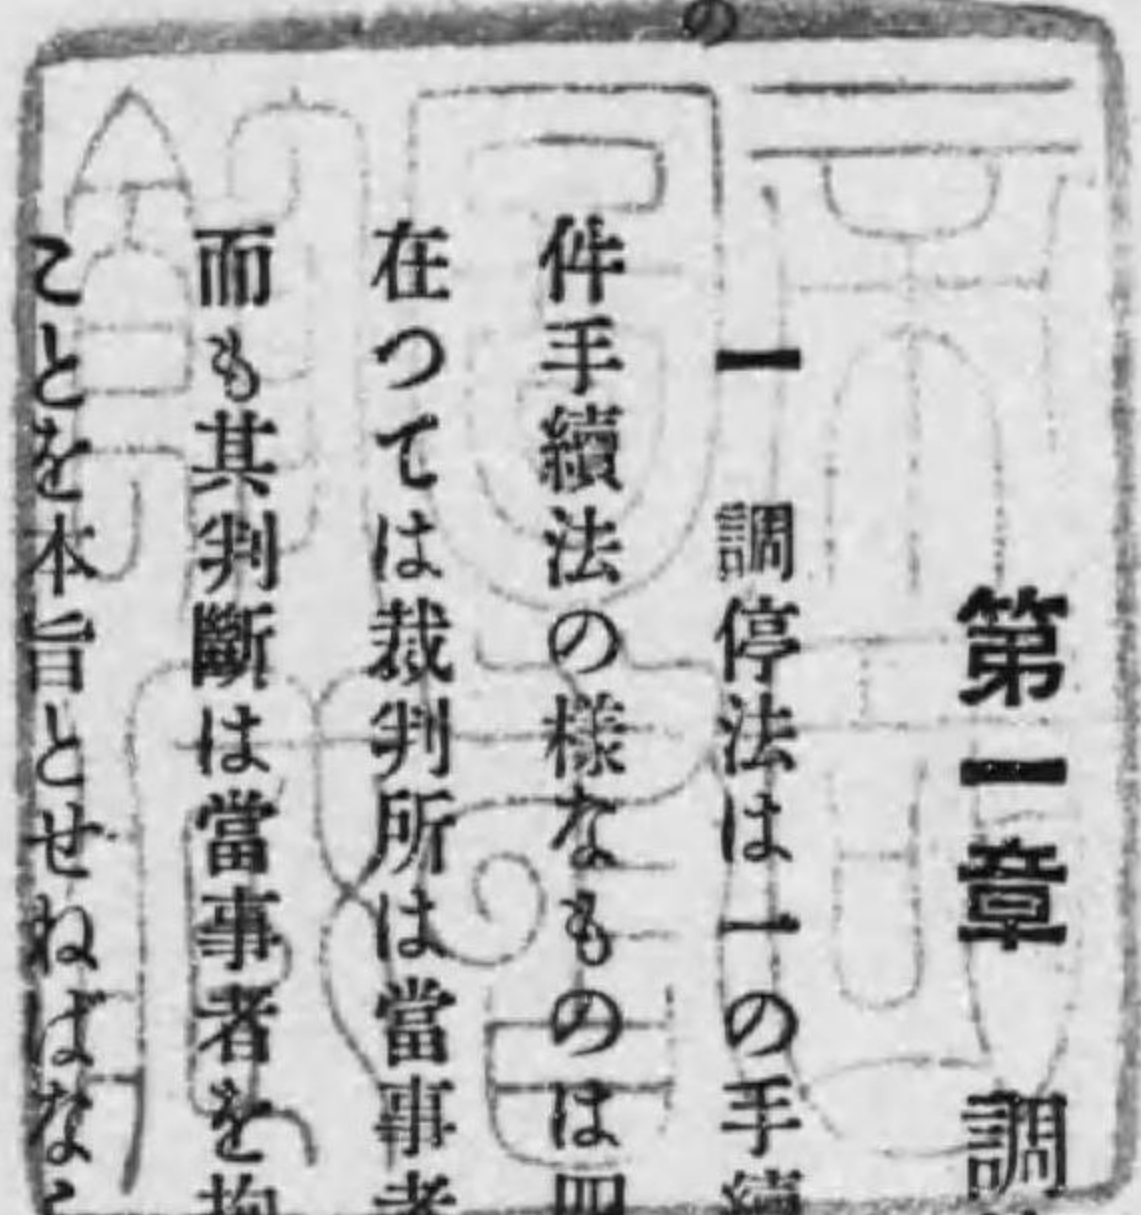 第一章　調
一　調停法は一の手續
件手續法の樣なものは
在つては裁判所は當事者
而も其判斷は當事者を拘
ことを本旨とせねばなら